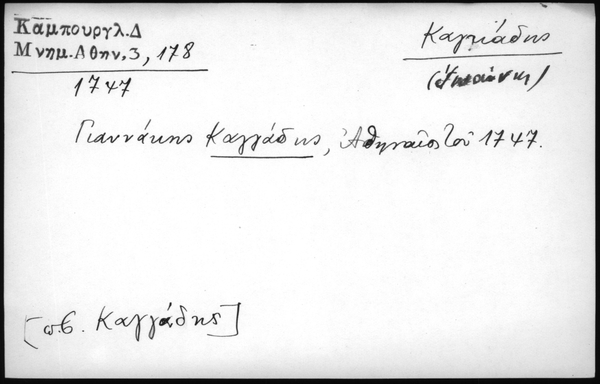 Καμπουργλ.Δ
Μνημ.Αθην.3, 178
1747
Καγκάδης
Γιαννάκης Καγγάδης, Ἀθηναῖος τοῦ 1747.
[πβ. Καγγάδης]